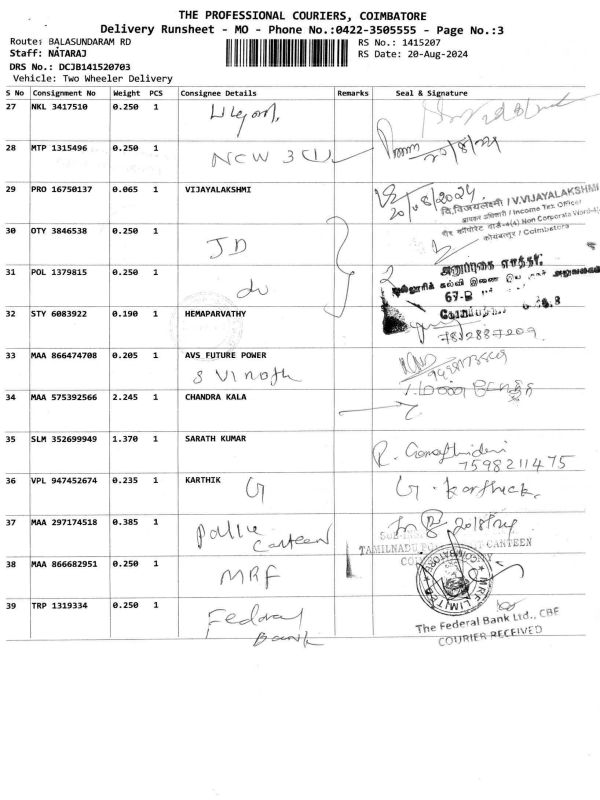 THE PROFESSIONAL COURIERS, COIMBATORE
Delivery Runsheet - MO - Phone No.:0422-3505555 - Page No.:3
Route: BALASUNDARAM RD
RS No.: 1415207
Staff: NATARAJ
RS Date: 20-Aug-2024
DRS No.: DCJB141520703
Vehicle: Two Wheeler Delivery
S No Consignment No Weight PCS Consignee Details Remarks Seal & Signature
27 NKL 3417510 0.250 1
28 MTP 1315496 0.250 1
NCW 3
20/8/24
29 PRO 16750137 0.065 1 VIJAYALAKSHMI
20/08/2024
वि.विजयलक्ष्मी / V.VIJAYALAKSHMI
आयकर अधिकारी / Income Tax Officer
गैर कॉर्पोरेट वार्ड-4(4) Non Corporate Ward-4(4)
कोयंबत्तूर / Coimbatore
30 OTY 3846538 0.250 1
JD
31 POL 1379815 0.250 1
do
கல்வி இணை
67-B
32 STY 6083922 0.190 1 HEMAPARVATHY
7812887209
33 MAA 866474708 0.205 1 AVS FUTURE POWER
S Vinoth
34 MAA 575392566 2.245 1 CHANDRA KALA
35 SLM 352699949 1.370 1 SARATH KUMAR
R. Gomathidevi
7598211475
36 VPL 947452674 0.235 1 KARTHIK
G
G. Karthick.
37 MAA 297174518 0.385 1
Police
Canteen
20/8/24
TAMILNADU CANTEEN
38 MAA 866682951 0.250 1
MRF
MRF LIMITED
COIMBATORE
39 TRP 1319334 0.250 1
Federal
Bank
The Federal Bank Ltd., CBE
COURIER RECEIVED